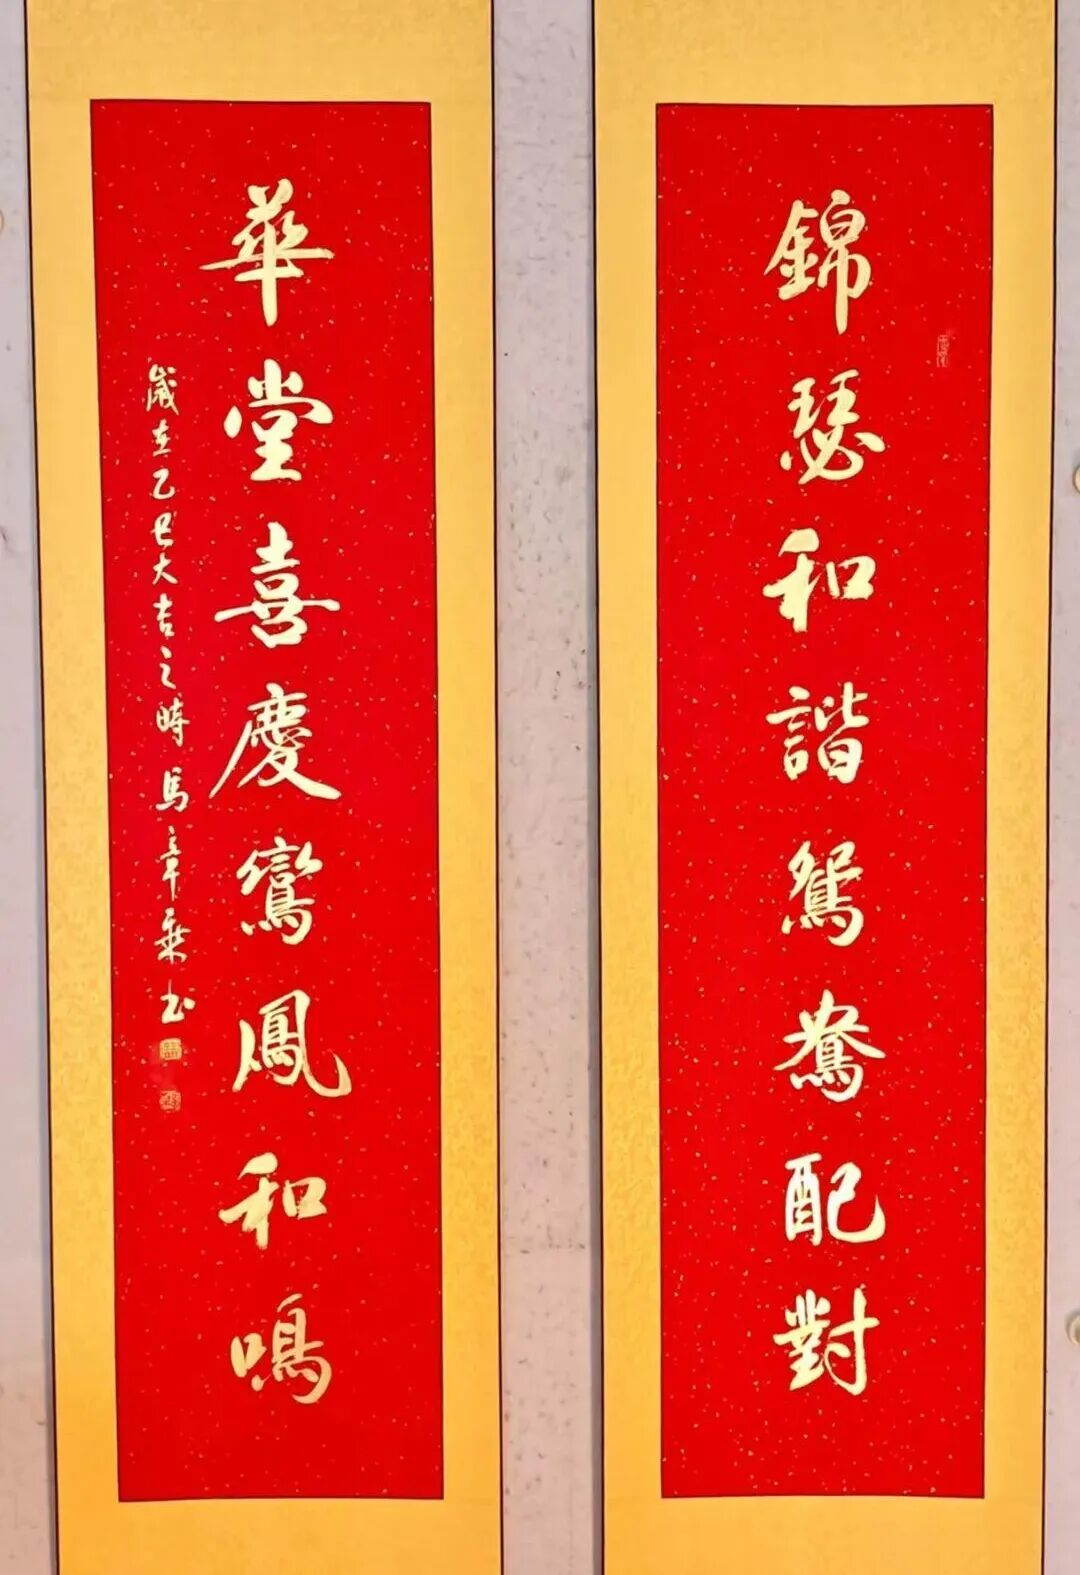 錦瑟和諧鴛鴦配對
華堂喜慶鸞鳳和鳴
歲在乙巳大吉之時馬章乘书